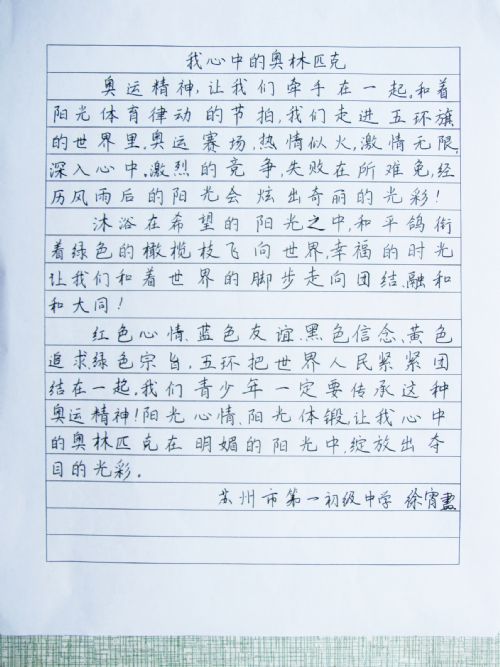 我心中的奥林匹克
奥运精神,让我们牵手在一起,和着
阳光体育律动的节拍,我们走进五环旗
的世界里,奥运赛场,热情似火,激情无限,
深入心中,激烈的竞争,失败在所难免,经
历风雨后的阳光会炫出奇丽的光彩!
沐浴在希望的阳光之中,和平鸽衔
着绿色的橄榄枝飞向世界,幸福的时光
让我们和着世界的脚步走向团结、融和
和大同!
红色心情、蓝色友谊、黑色信念、黄色
追求绿色宗旨,五环把世界人民紧紧团
结在一起,我们青少年一定要传承这种
奥运精神!阳光心情,阳光体锻,让我心中
的奥林匹克在明媚的阳光中,绽放出夺
目的光彩。
苏州市第一初级中学 徐霄